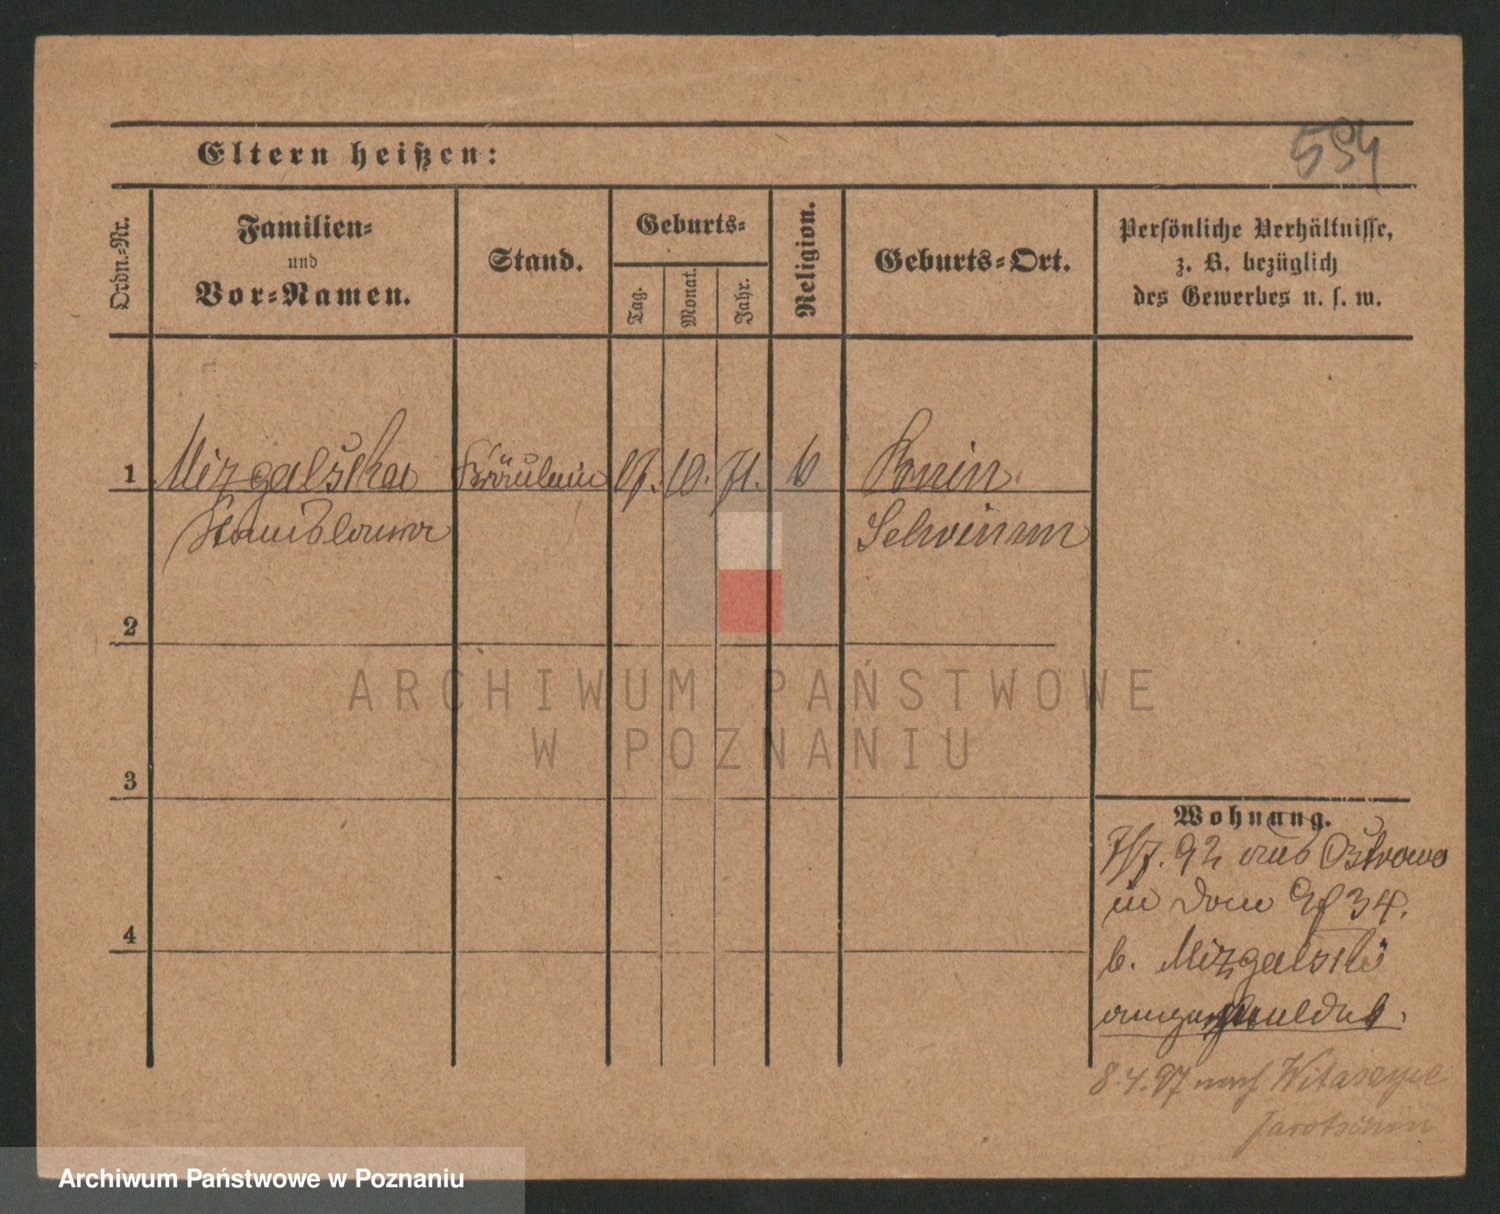 594
Eltern heißen:
Ordn.-Nr.
Familien-
und
Vor-Namen.
Stand.
Geburts-
Tag.
Monat.
Jahr.
Religion.
Geburts-Ort.
Persönliche Verhältnisse,
z. B. bezüglich
des Gewerbes u. s. w.
1 Mizgalska Fräulein 17. 10. 71. k
Stanislawa
2
3
4
Wohnung.
7/7. 92 aus Ostrowo
in 34.
b. Mizgalski
angemeldet.
8.4.97 nach Witaszyce
Jarotschin
ARCHIWUM PAŃSTWOWE
W POZNANIU
Archiwum Państwowe w Poznaniu